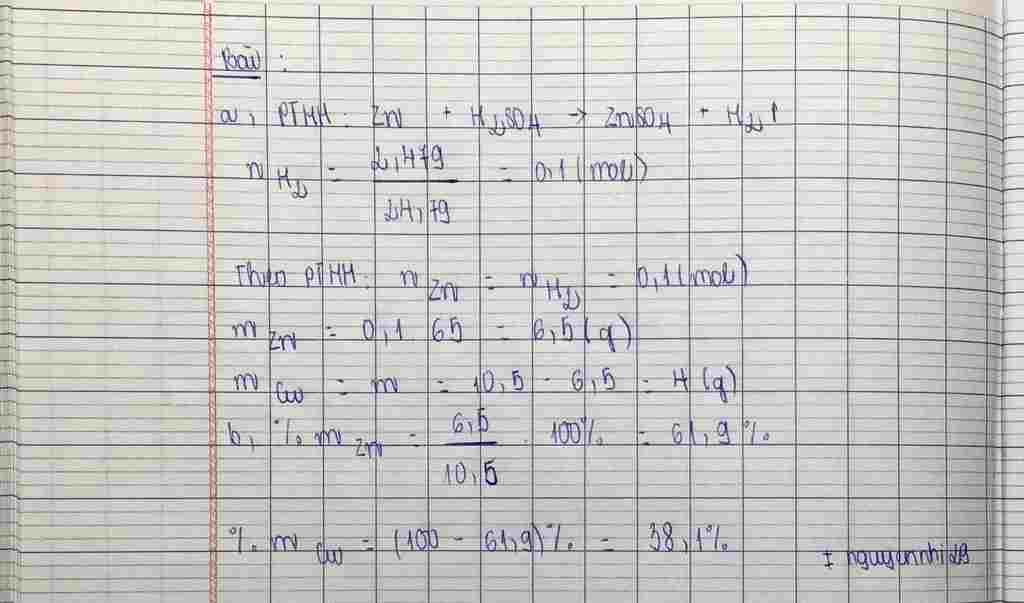 Bài :
a, PTHH: Zn + H₂SO₄ → ZnSO₄ + H₂↑
n H₂ = 2,479 / 24,79 = 0,1 (mol)
Theo PTHH: n Zn = n H₂ = 0,1 (mol)
m Zn = 0,1 . 65 = 6,5 (g)
m Cu = m = 10,5 - 6,5 = 4 (g)
b, % m Zn = 6,5 / 10,5 . 100% = 61,9 %
% m Cu = (100 - 61,9)% = 38,1%
I nguyennhi29